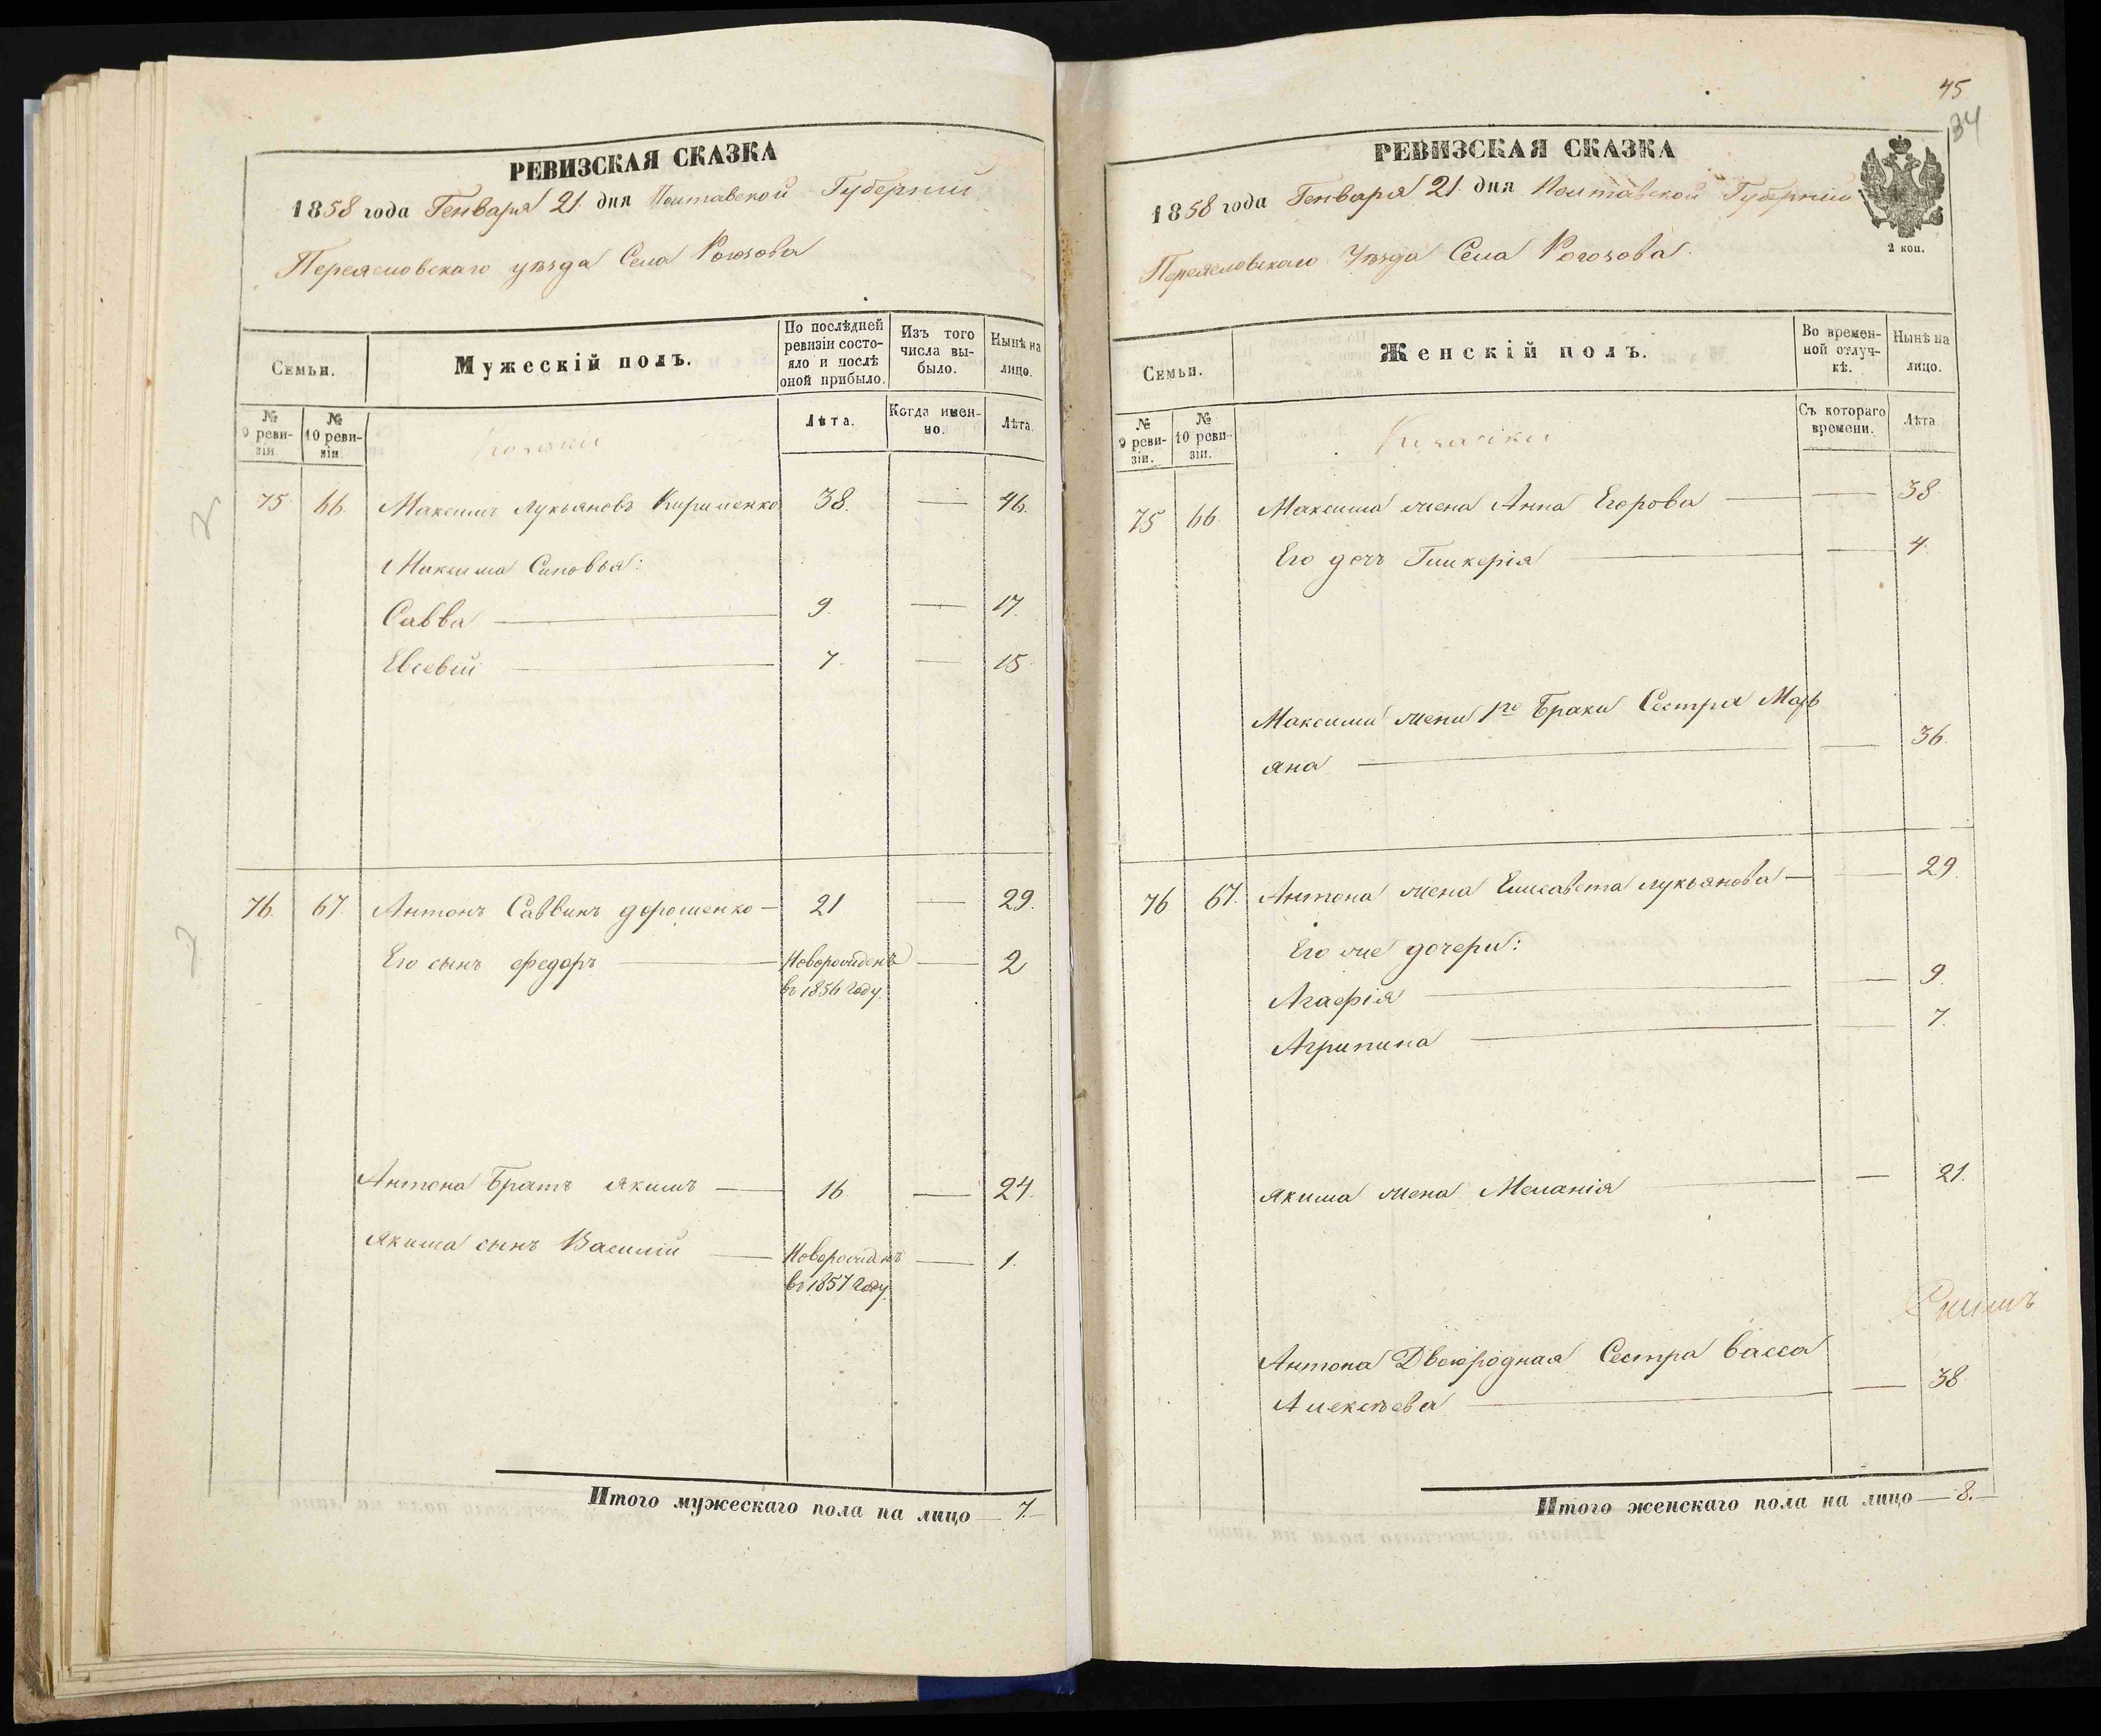 РЕВИЗСКАЯ СКАЗКА
1858 года Генваря 21 дня Полтавской Губерніи
Переяславскаго уѣзда Села Рогозова
Семьи.
Мужескій полъ.
По послѣдней ревизіи состояло и послѣ оной прибыло.
Изъ того числа выбыло.
Нынѣ на лицо.
№ 9 ревизіи.
№ 10 ревизіи
Козаки
Лѣта.
Когда именно.
Лѣта.
75 66 Максимъ Лукьяновъ Кириленко 38. — 46.
Максима Синовья:
Савва — 9. — 17.
Евсевій — 7. — 15.
76. 67. Антонъ Саввинъ дорошенко — 21 — 29.
Его сынъ федоръ — Новорожденъ — 2
въ 1856 году.
Антона Братъ якимъ — 16 — 24.
якима сынъ Василій — Новорожденъ — 1.
въ 1857 году.
Итого мужескаго пола на лицо — 7. —
45
34
РЕВИЗСКАЯ СКАЗКА
1858 года Генваря 21 дня Полтавской Губерніи
2 коп.
Переяславскаго Уѣзда Села Рогозова
Семьи.
Женскій полъ.
Во временной отлучкѣ.
Нынѣ на лицо.
№ 9 ревизіи.
№ 10 ревизіи.
Козачки
Съ котораго времени.
Лѣта
75 66. Максима жена Анна Егорова — — 38.
Его дочъ Гликерія — — 4.
Максима жени 1го Брака Сестра Марь
яна — — 36.
76 67. Антона жена Елисавета лукьянова — — 29.
Его же дочери:
Агафія — — 9.
Агрипина — — 7.
якима жена Меланія — — 21.
Антона Двоюродная Сестра Васса
Алексѣева — — 38
Итого женскаго пола на лицо — 8. —